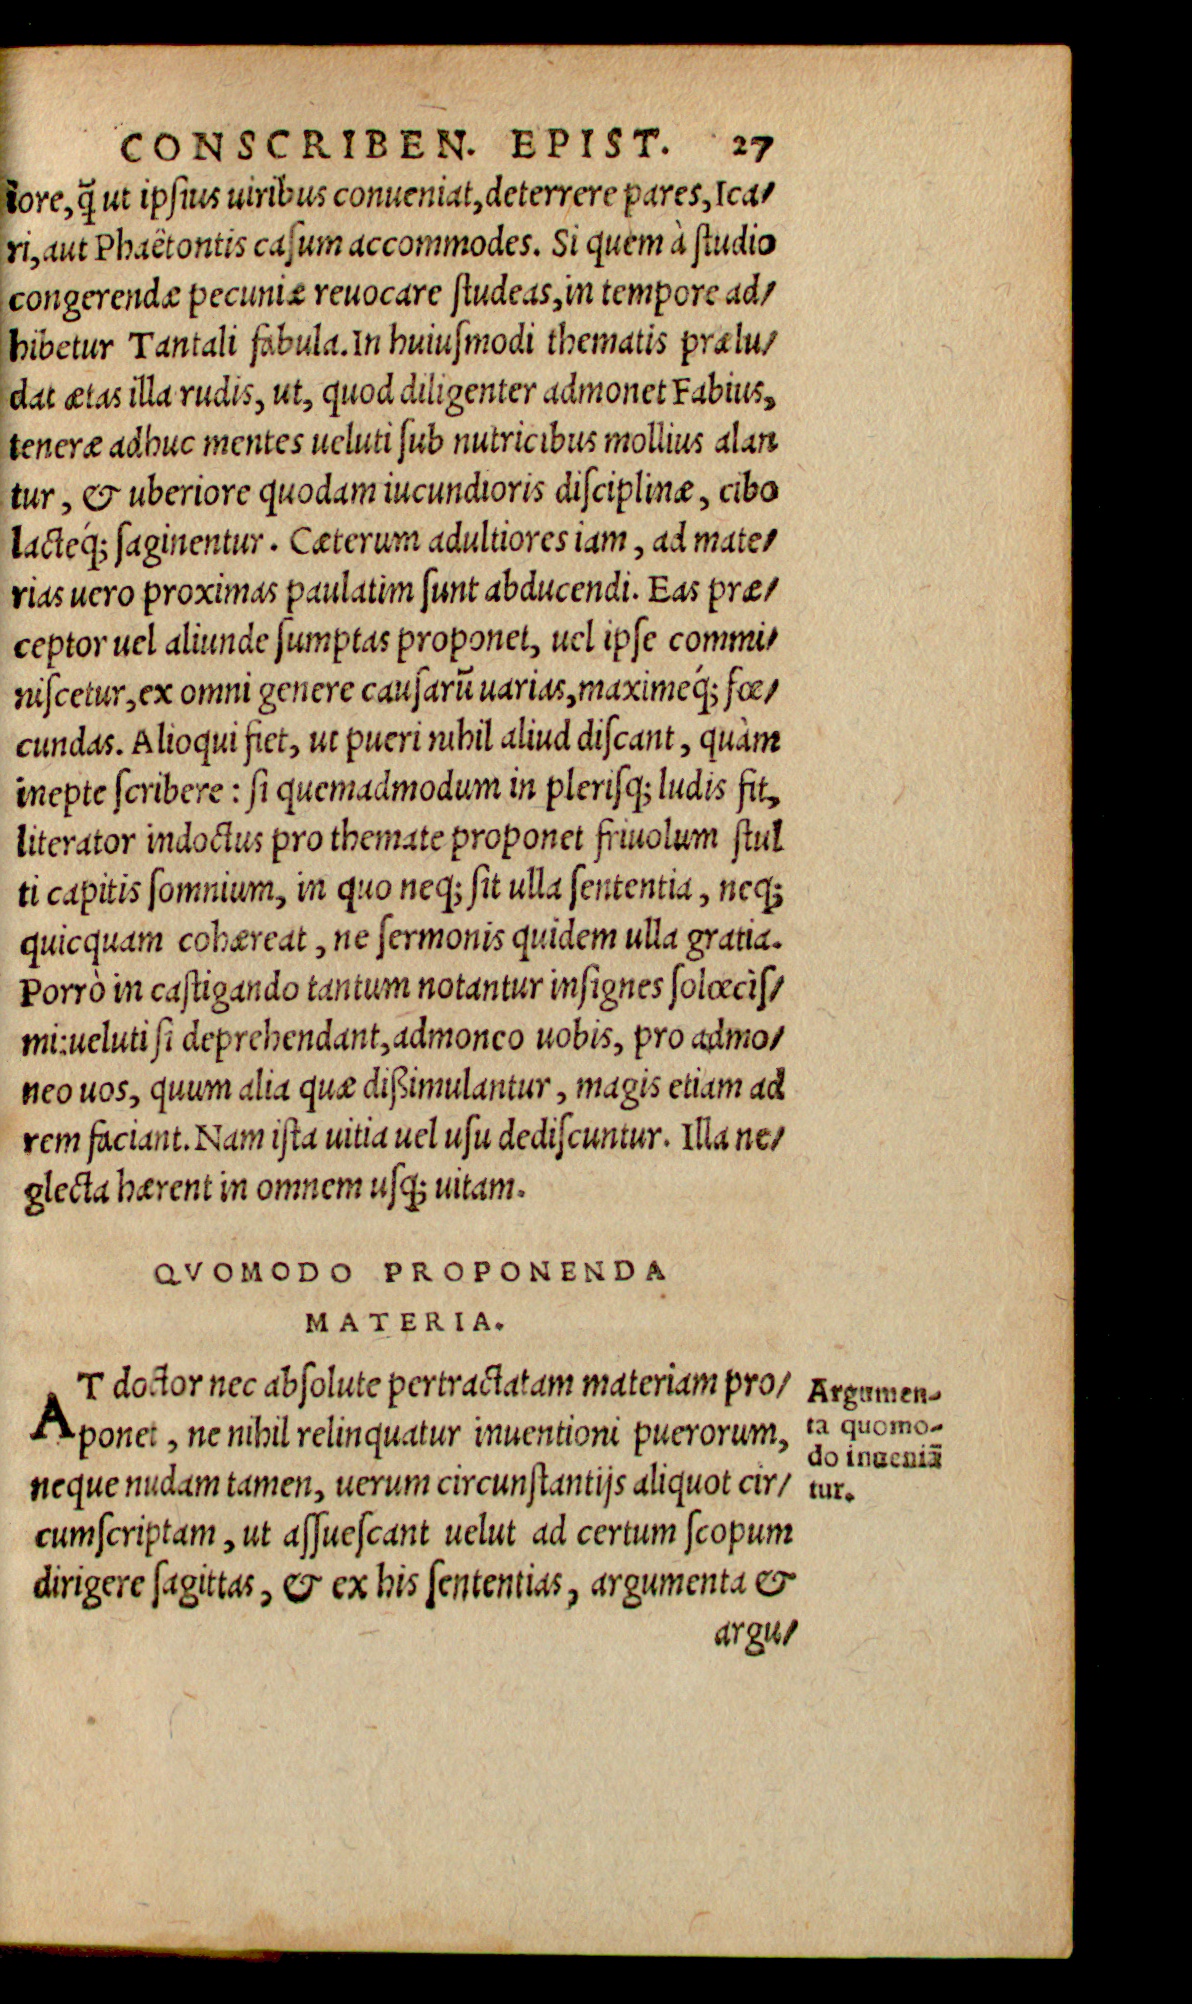 CONSCRIBEN. EPIST. 27
iore, q̃ ut ipſius uiribus conueniat, deterrere pares, Ica/
ri, aut Phaëtontis caſum accommodes. Si quem à ſtudio
congerendæ pecuniæ reuocare ſtudeas, in tempore ad/
hibetur Tantali fabula. In huiuſmodi thematis prælu/
dat ætas illa rudis, ut, quod diligenter admonet Fabius,
teneræ adhuc mentes ueluti ſub nutricibus mollius alan
tur, & uberiore quodam iucundioris diſciplinæ, cibo
lacteq́; ſaginentur. Cæterum adultiores iam, ad mate/
rias uero proximas paulatim ſunt abducendi. Eas præ/
ceptor uel aliunde ſumptas proponet, uel ipſe commi/
niſcetur, ex omni genere cauſarũ uarias, maximeq́; fœ/
cundas. Alioqui fiet, ut pueri nihil aliud diſcant, quàm
inepte ſcribere: ſi quemadmodum in pleriſq; ludis fit,
literator indoctus pro themate proponet friuolum ſtul
ti capitis ſomnium, in quo neq; ſit ulla ſententia, neq;
quicquam cohæreat, ne ſermonis quidem ulla gratia.
Porrò in caſtigando tantum notantur inſignes ſolœciſ/
mi: ueluti ſi deprehendant, admoneo uobis, pro admo/
neo uos, quum alia quæ dißimulantur, magis etiam ad
rem faciant. Nam iſta uitia uel uſu dediſcuntur. Illa ne/
glecta hærent in omnem uſq; uitam.
QVOMODO PROPONENDA
MATERIA.
AT doctor nec abſolute pertractatam materiam pro/
ponet, ne nihil relinquatur inuentioni puerorum,
neque nudam tamen, uerum circunſtantijs aliquot cir/
cumſcriptam, ut aſſueſcant uelut ad certum ſcopum
dirigere ſagittas, & ex his ſententias, argumenta &
argu/
Argumen-
ta quomo-
do inueniã
tur.